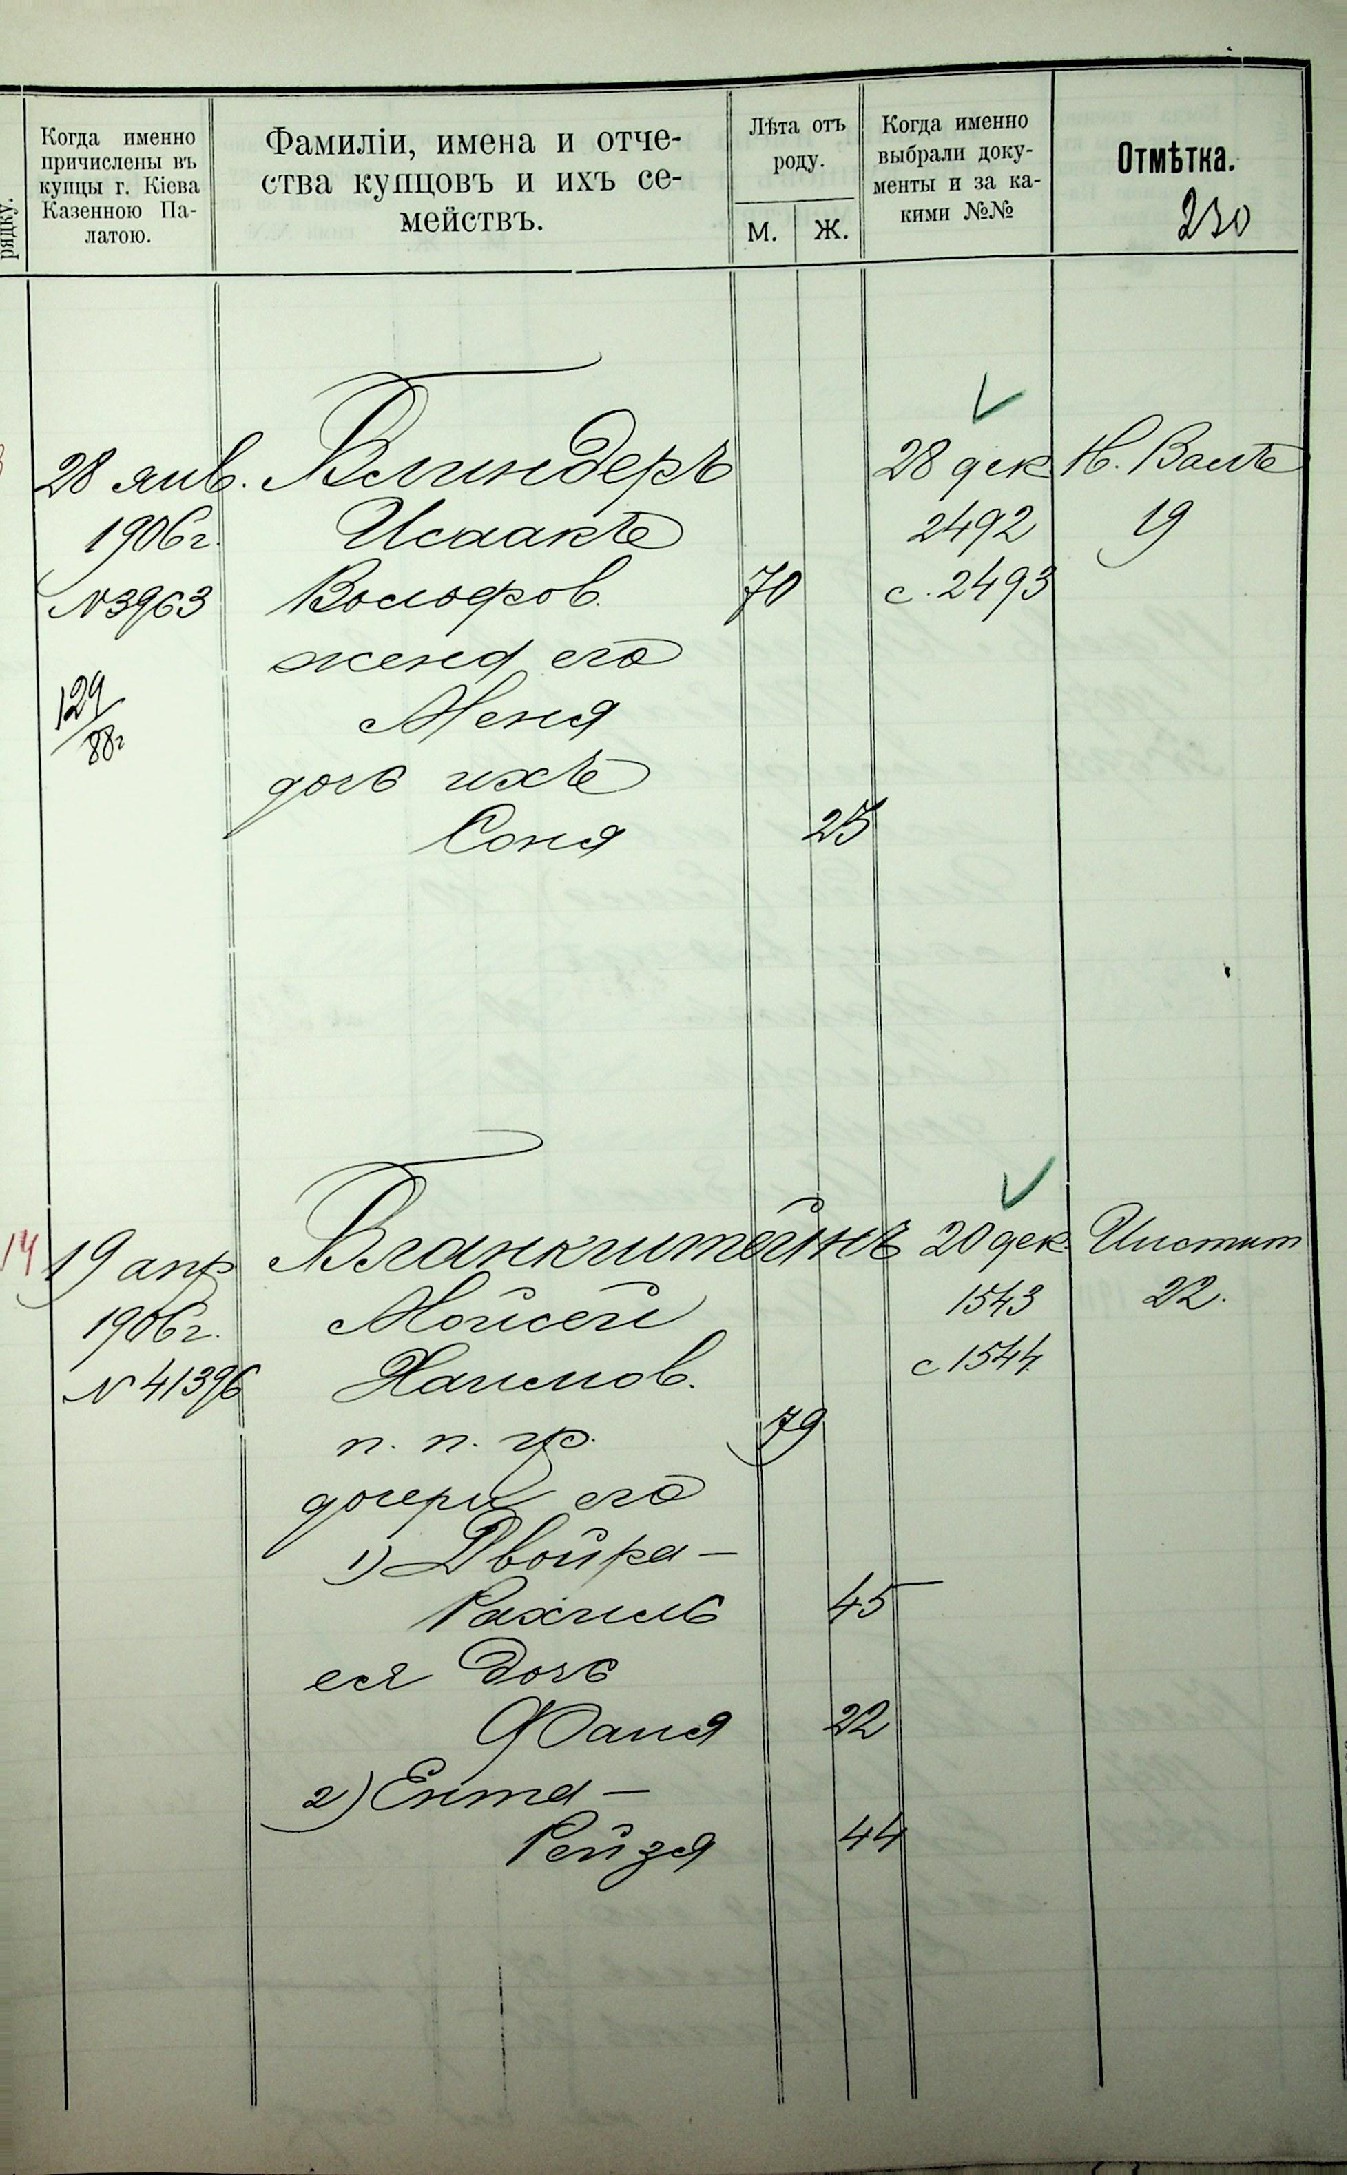 рядку.
Когда именно
причислены въ
купцы г. Кіева
Казенною Па-
латою.
Фамиліи, имена и отче-
ства купцовъ и ихъ се-
мействъ.
Лѣта отъ
роду.
М. Ж.
Когда именно
выбрали доку-
менты и за ка-
кими №№
Отмѣтка.
230
28 янв. Блиндеръ 28 дек Н. Валъ
1906г. Исаакъ 2492 19
№3963 Вольфов. 70 с. 2493
жена его
129/88г Меня
дочь ихъ
Соня 25
14 19 апр Бланкштейнъ 20 дек. Инстит
1906г. Мойсей 1543 22.
№41396 Хаимов. с 1544
п. п. гр. 79
дочери его
1) Двойра-
Рахиль 45
ея дочь
Фаня 22
2) Ента-
Рейзя 44